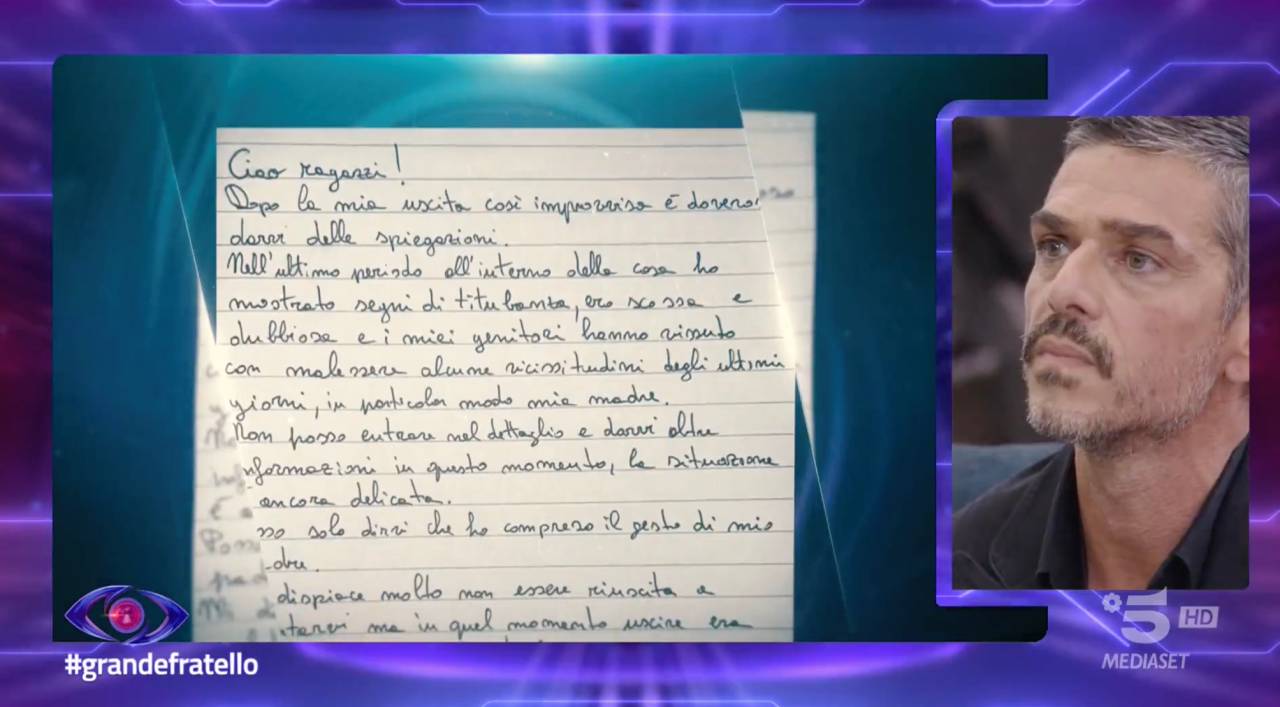 Ciao ragazzi!
Dopo la mia uscita così improvvisa è doveroso
darvi delle spiegazioni.
Nell'ultimo periodo all'interno della casa ho
mostrato segni di titubanza, ero scossa e
dubbiosa e i miei genitori hanno vissuto
con malessere alcune vicissitudini degli ultimi
giorni, in particolar modo mia madre.
Non posso entrare nel dettaglio e darvi altre
nformazioni in questo momento, la situazione
ancora delicata.
sso solo dirvi che ho compreso il gesto di mio
dre.
dispiace molto non essere riuscita a
tarvi ma in quel momento uscire era
#grandefratello
5 HD
MEDIASET